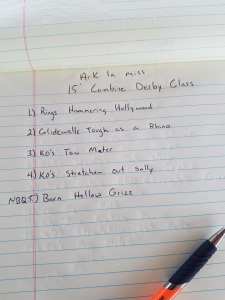 Ark La miss
15" Combine Derby Class
1) Rings Hammering Hollywood
2) Glidewells Tough as a Rhino
3) Ko's Tow Mater
4) Ko's Stretchem out Sally
NBQ5) Barn Hollow Grizz